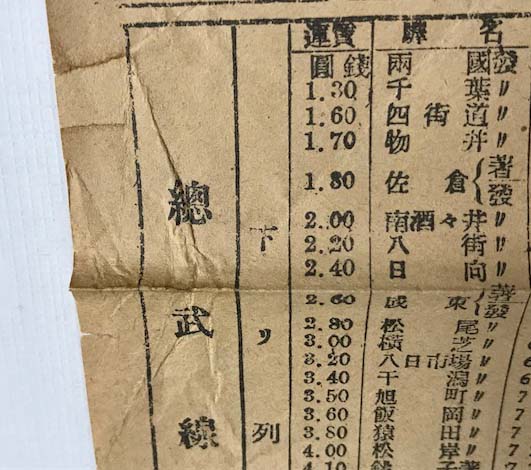 總武線
下リ列
運賃 驛名
圓錢 兩國 發
1.30 千葉 〃
1.60 四街道 〃
1.70 物井 〃
1.80 佐倉 著發
2.00 南酒々井 〃
2.20 八街 〃
2.40 日向 〃
2.60 成東 著發
2.80 松尾 〃
3.00 橫芝 〃 6
3.20 八日市場 〃 6
3.40 干潟 〃 6
3.50 旭町 〃 7
3.60 飯岡 〃 7
3.80 猿田 〃 7
4.00 松岸 〃 7
4.10 銚子 著